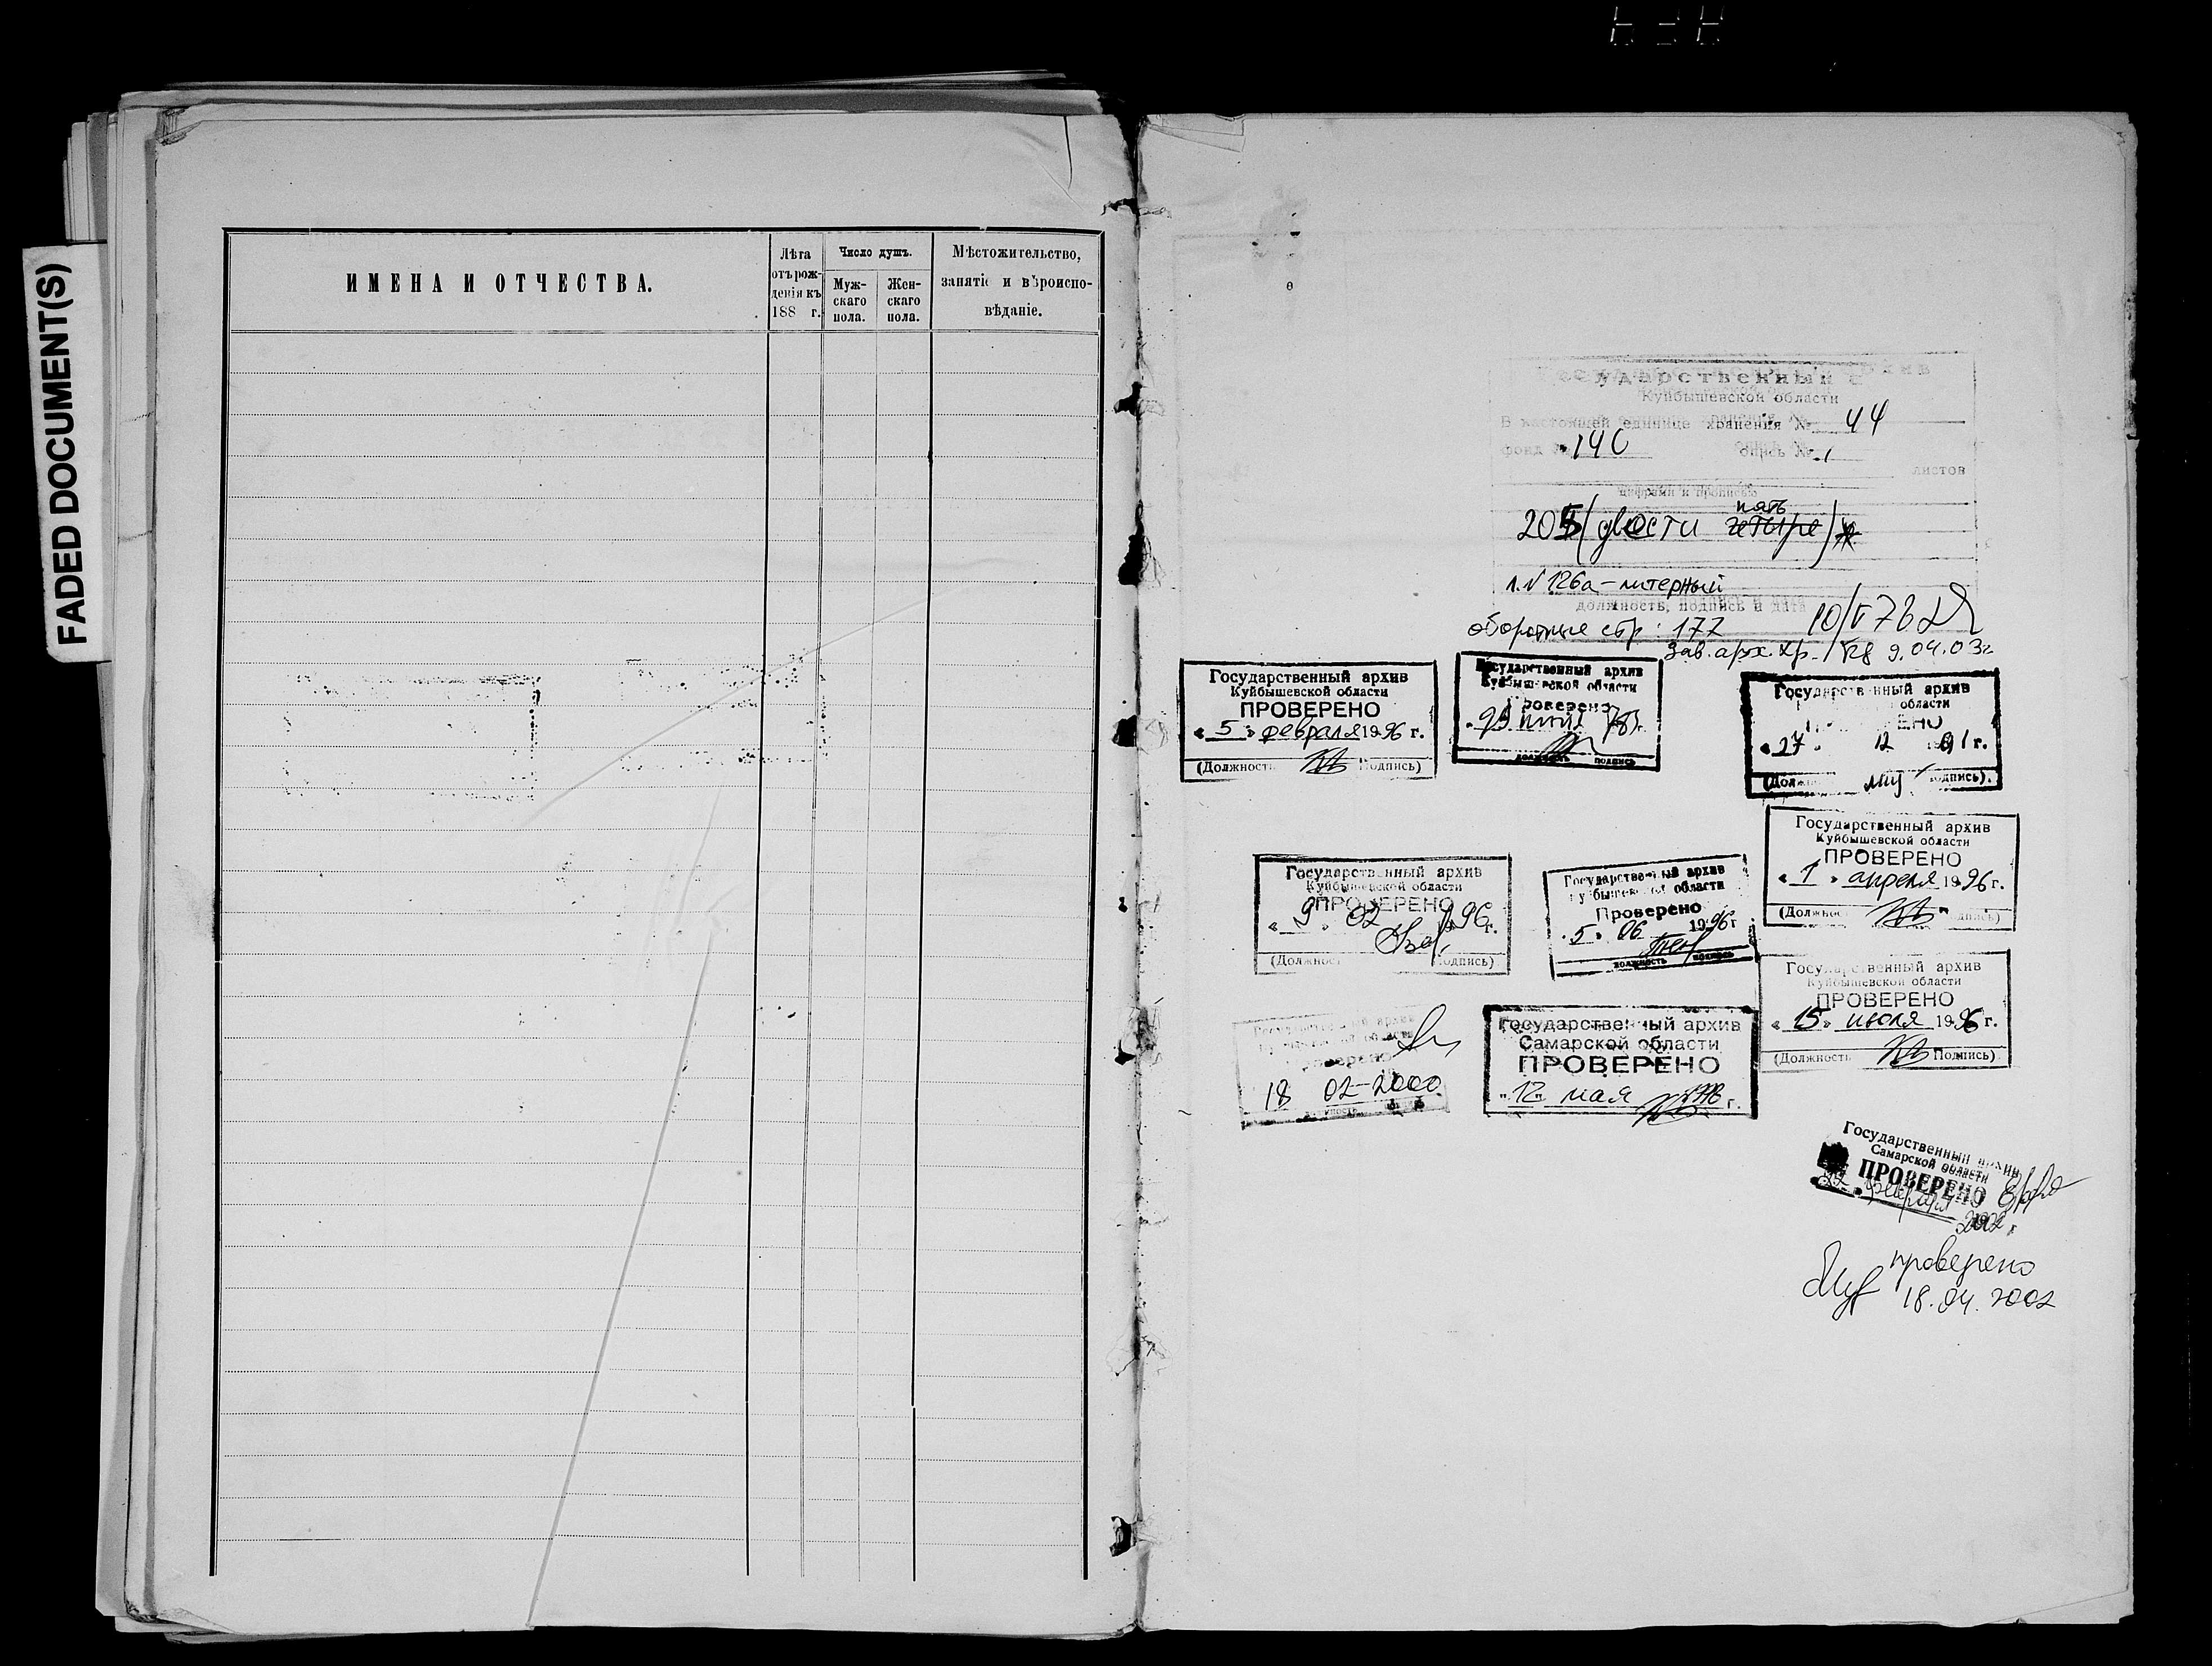 FADED DOCUMENT(S)
ИМЕНА И ОТЧЕСТВА.
Лѣта
отъ рож-
денія къ
188 г.
Число душъ.
Муж-
скаго
пола.
Жен-
скаго
пола.
Мѣстожительство,
занятіе и вѣроиспо-
вѣданіе.
Государственный архив
Куйбышевской области
В настоящей единице хранения № 44
фонд № 140 опись № 1
листов
цифрами и прописью
205 (двести пять четыре)
л. № 126а - литерный
должность, подпись и дата
оборотные стр: 177
зав. арх. хр. 9.04.03г
Государственный архив
Куйбышевской области
ПРОВЕРЕНО
« 5 » февраля 1996 г.
(Должность Подпись)
Государственный архив
Куйбышевской области
Проверено
должность подпись
Государственный архив
области
ЕНО
« 27 » 12 г.
Государственный архив
Куйбышевской области
ПРОВЕРЕНО
« 1 » апреля 1996 г.
Государственный архив
Куйбышевской области
ПРОВЕРЕНО
« 9 » 02 1996 г.
(Должнос одпись)
Государственный архив
Куйбышевской области
Проверено
« 5 » 06 1996 г
должность подпись
Государственный архив
Куйбышевской области
ПРОВЕРЕНО
« 15 » июля 1996 г.
(Должность Подпись)
Проверено
18 02-2000
Государственный архив
Самарской области
ПРОВЕРЕНО
"12" мая г.
Государственный архив
Самарской области
ПРОВЕРЕНО
22 февраля
2002 г
проверено
18.04.2002